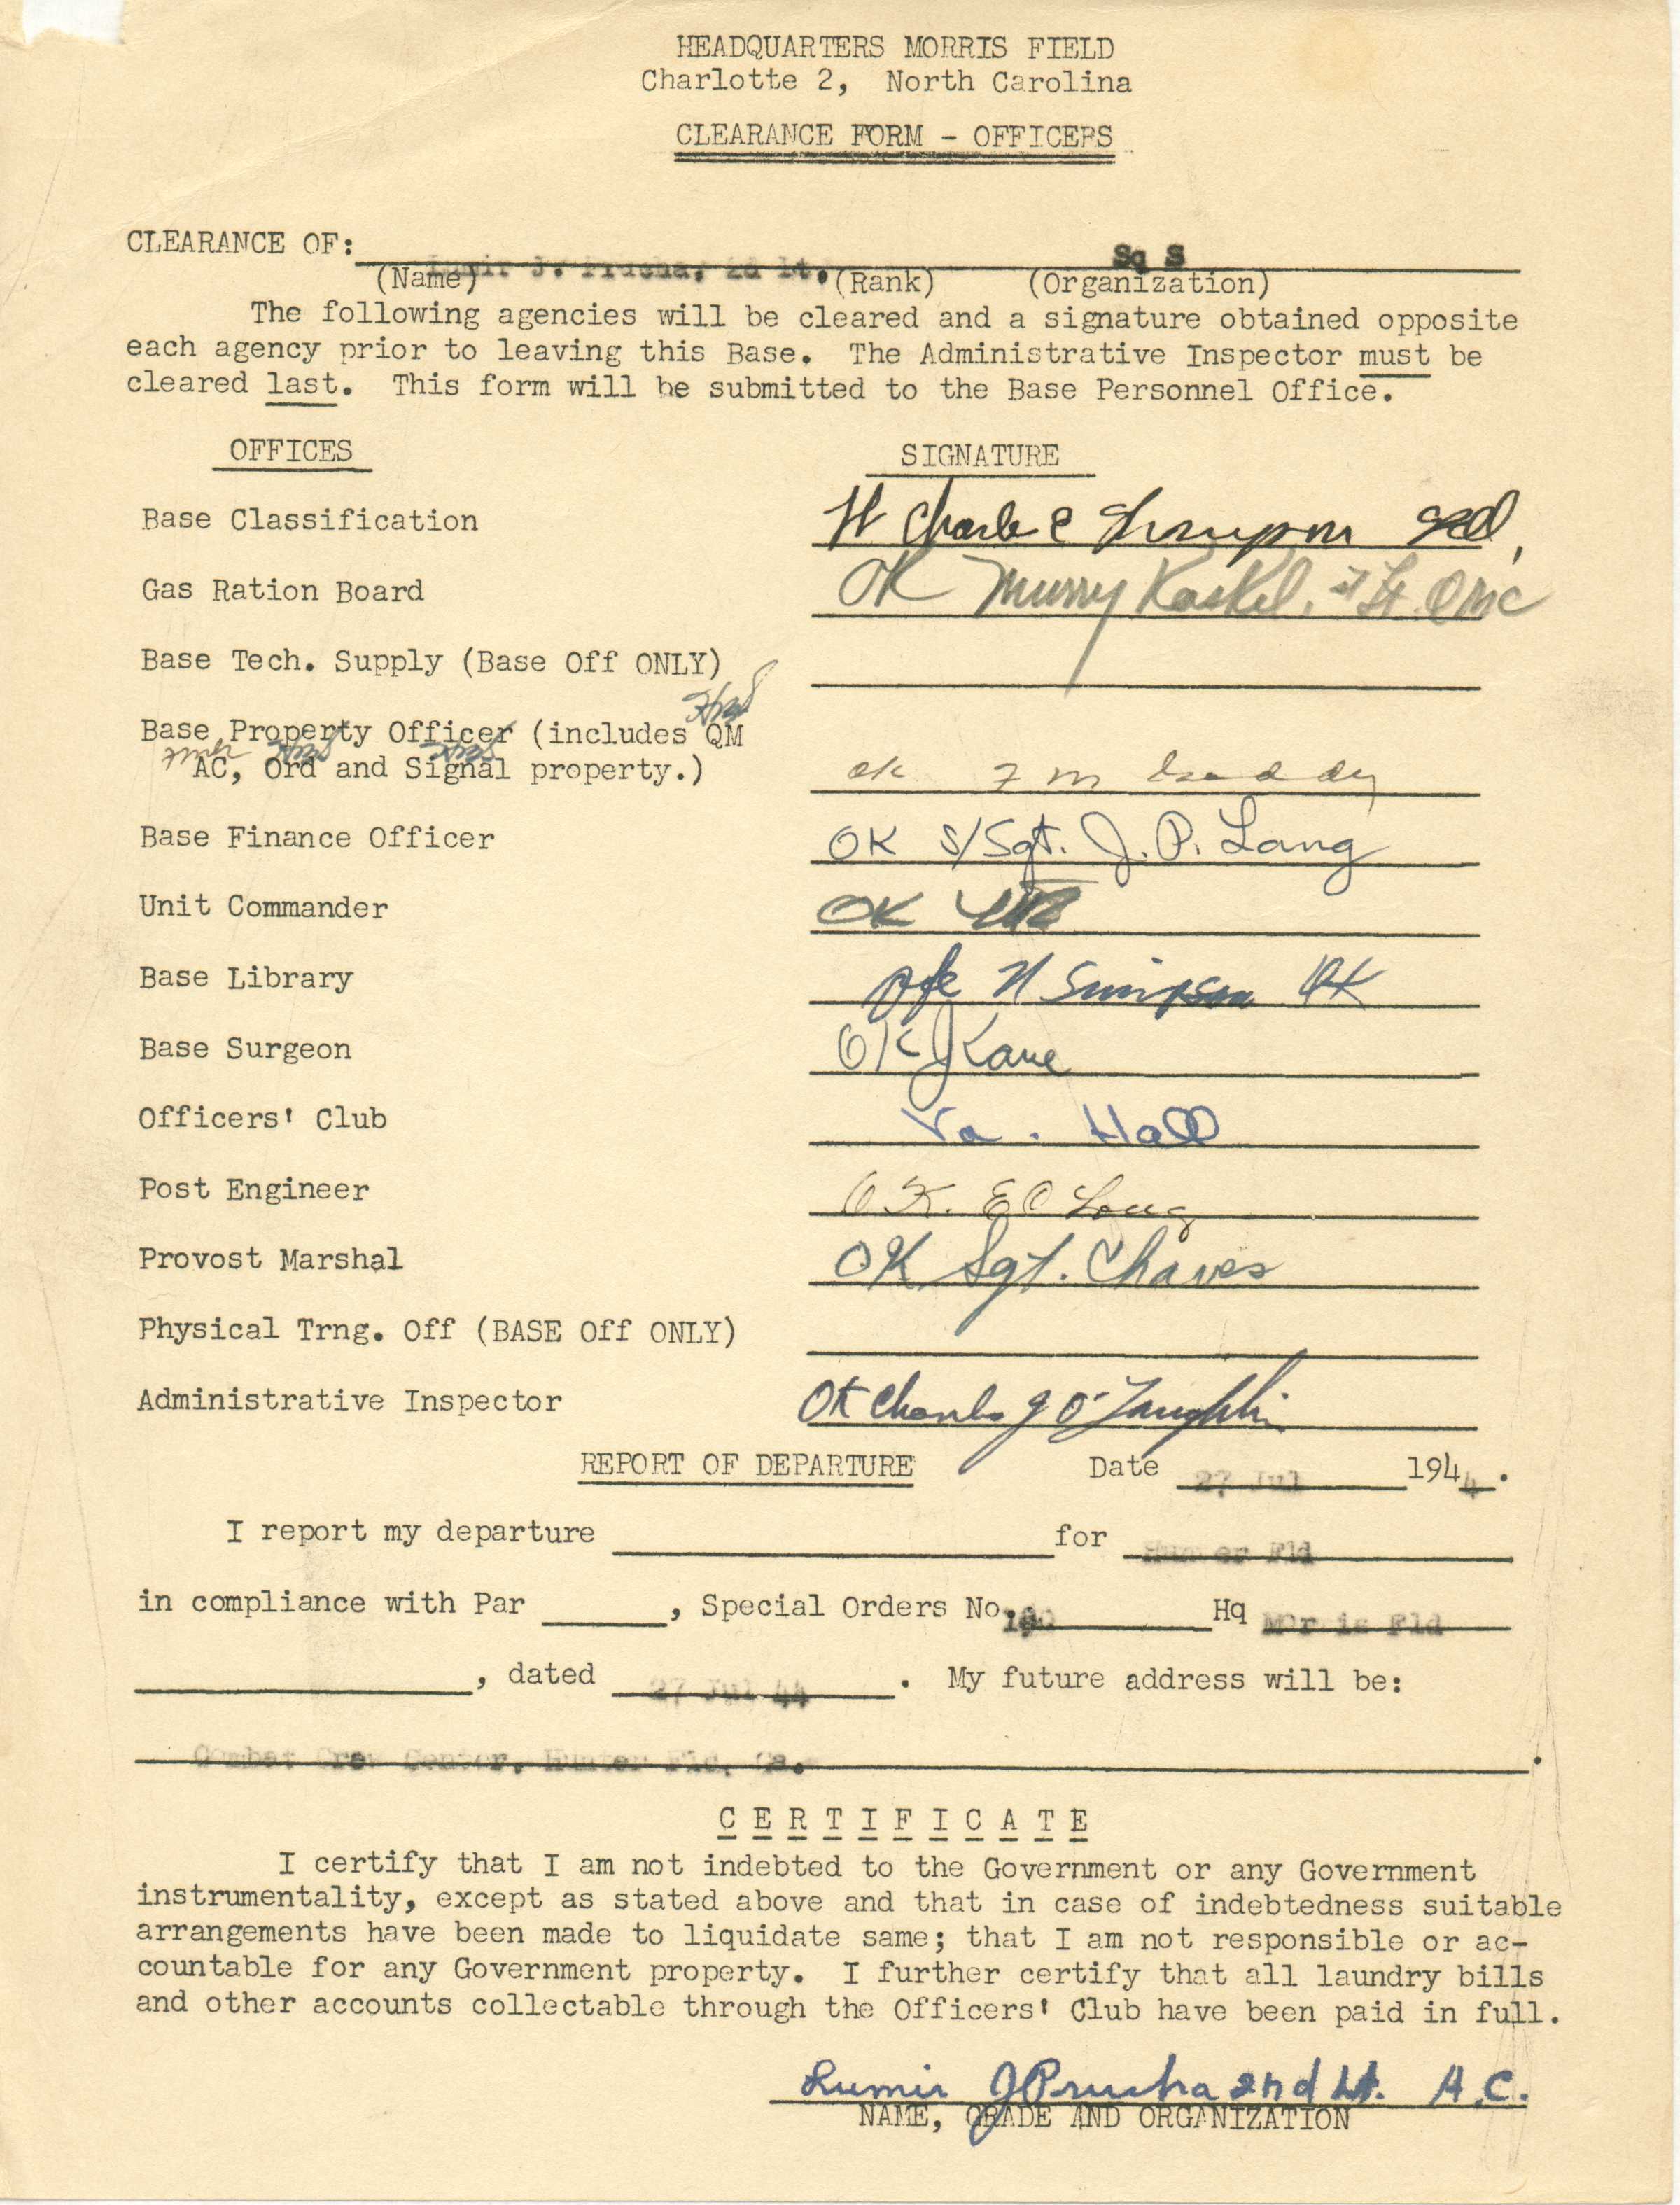 HEADQUARTERS MORRIS FIELD
Charlotte 2, North Carolina
CLEARANCE FORM - OFFICERS
CLEARANCE OF: Lumir J. Prucha, 2d Lt. Sq S
(Name) (Rank) (Organization)
The following agencies will be cleared and a signature obtained opposite
each agency prior to leaving this Base. The Administrative Inspector must be
cleared last. This form will be submitted to the Base Personnel Office.
OFFICES SIGNATURE
Base Classification Charles E Thompson
Gas Ration Board OK Murry Kaskel, 1st Lt. QMC
Base Tech. Supply (Base Off ONLY)
Base Property Officer (includes QM
AC, Ord and Signal property.) ok
Base Finance Officer OK S/Sgt. J. P. Lang
Unit Commander OK
Base Library Pfc N Simpson OK
Base Surgeon OK J Kane
Officers' Club Va. Hall
Post Engineer O.K. E C Long
Provost Marshal OK Sgt. Chaves
Physical Trng. Off (BASE Off ONLY)
Administrative Inspector OK Charles J O'Laughlin
REPORT OF DEPARTURE Date 27 Jul 1944.
I report my departure for Hunter Fld
in compliance with Par , Special Orders No. Hq Morris Fld
, dated 27 Jul 44. My future address will be:
Combat Crew Center, Hunter Fld, Ga.
CERTIFICATE
I certify that I am not indebted to the Government or any Government
instrumentality, except as stated above and that in case of indebtedness suitable
arrangements have been made to liquidate same; that I am not responsible or ac-
countable for any Government property. I further certify that all laundry bills
and other accounts collectable through the Officers' Club have been paid in full.
Lumir J Prucha 2nd Lt. A.C.
NAME, GRADE AND ORGANIZATION